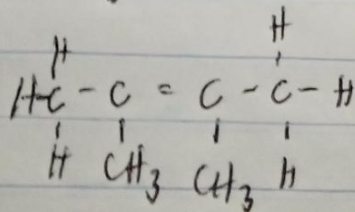 H H
HC - C = C - C - H
H CH3 CH3 H